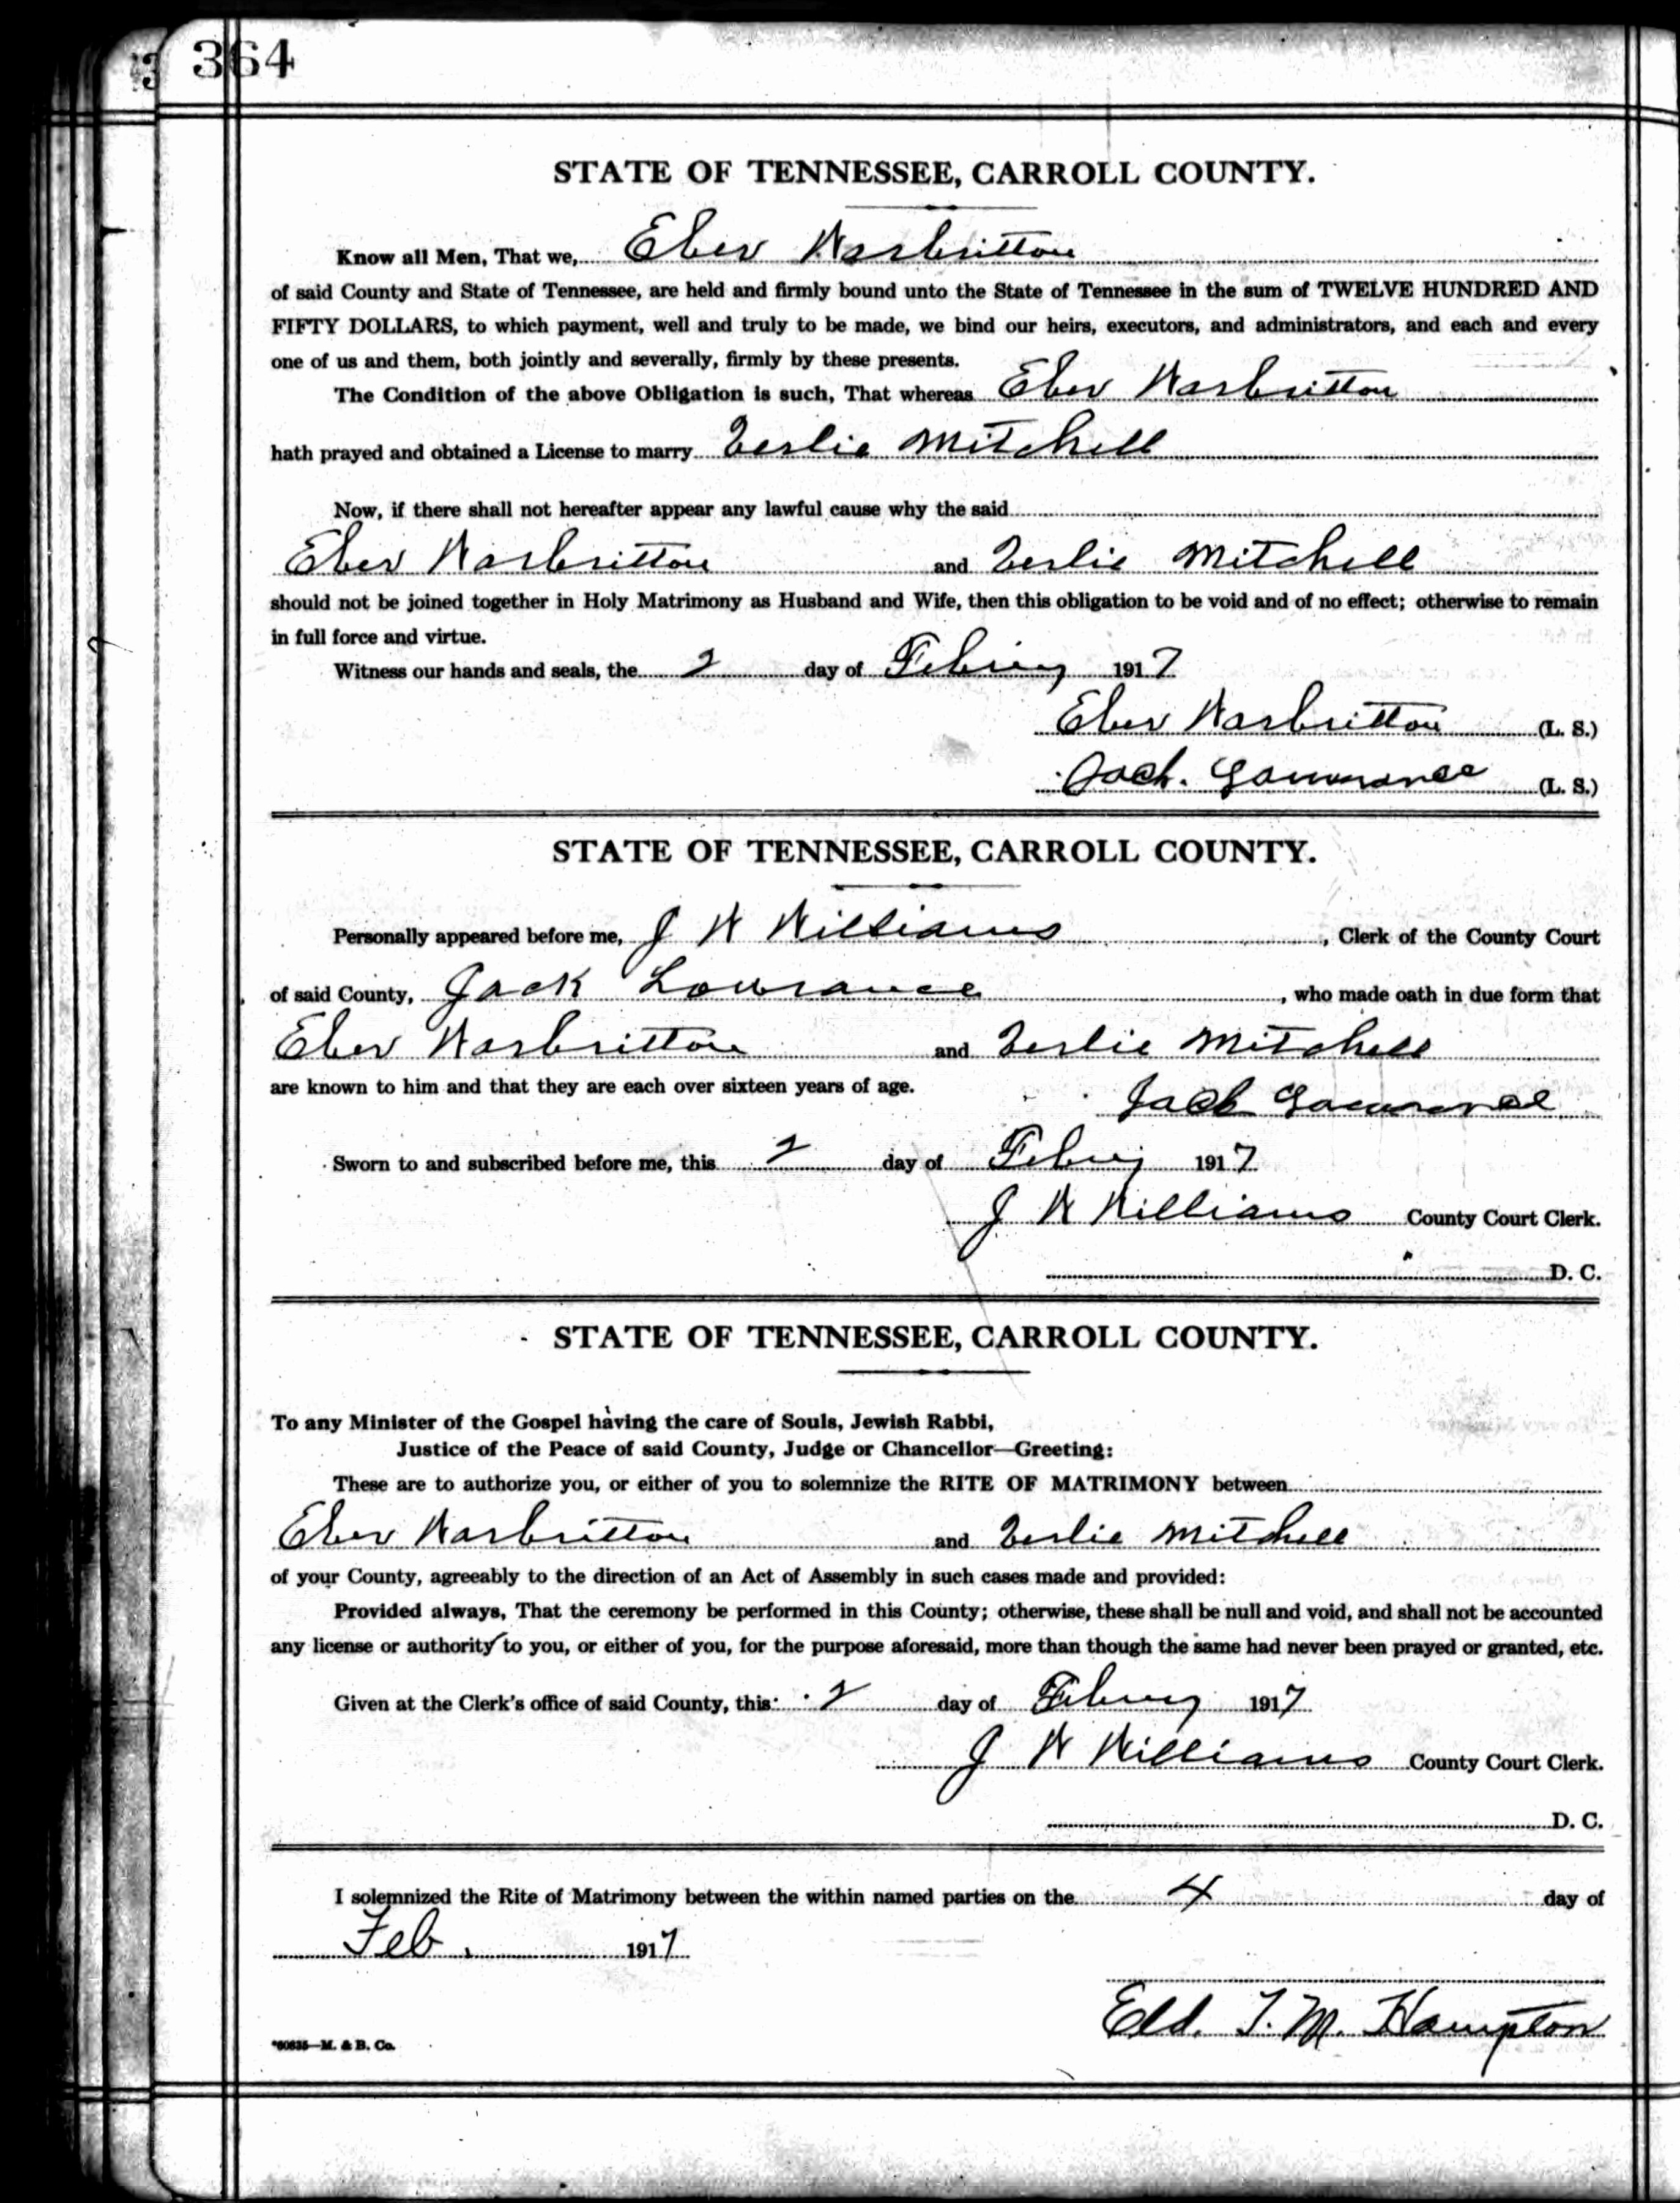 364
STATE OF TENNESSEE, CARROLL COUNTY.
Know all Men, That we, Eber Warbritton
of said County and State of Tennessee, are held and firmly bound unto the State of Tennessee in the sum of TWELVE HUNDRED AND
FIFTY DOLLARS, to which payment, well and truly to be made, we bind our heirs, executors, and administrators, and each and every
one of us and them, both jointly and severally, firmly by these presents.
The Condition of the above Obligation is such, That whereas Eber Warbritton
hath prayed and obtained a License to marry Leslie Mitchell
Now, if there shall not hereafter appear any lawful cause why the said
Eber Warbritton and Leslie Mitchell
should not be joined together in Holy Matrimony as Husband and Wife, then this obligation to be void and of no effect; otherwise to remain
in full force and virtue.
Witness our hands and seals, the 2 day of 1917
Eber Warbritton (L. S.)
Jack (L. S.)
STATE OF TENNESSEE, CARROLL COUNTY.
Personally appeared before me, J W Williams, Clerk of the County Court
of said County, Jack Lowrance, who made oath in due form that
Eber Warbritton and Leslie Mitchell
are known to him and that they are each over sixteen years of age.
Jack
Sworn to and subscribed before me, this 2 day of 1917
J W Williams County Court Clerk.
D. C.
STATE OF TENNESSEE, CARROLL COUNTY.
To any Minister of the Gospel having the care of Souls, Jewish Rabbi,
Justice of the Peace of said County, Judge or Chancellor—Greeting:
These are to authorize you, or either of you to solemnize the RITE OF MATRIMONY between
Eber Warbritton and Leslie Mitchell
of your County, agreeably to the direction of an Act of Assembly in such cases made and provided:
Provided always, That the ceremony be performed in this County; otherwise, these shall be null and void, and shall not be accounted
any license or authority to you, or either of you, for the purpose aforesaid, more than though the same had never been prayed or granted, etc.
Given at the Clerk's office of said County, this 2 day of 1917
J W Williams County Court Clerk.
D. C.
I solemnized the Rite of Matrimony between the within named parties on the 4 day of
Feb. 1917
Eld. T. M. Hampton
*60635—M. & B. Co.